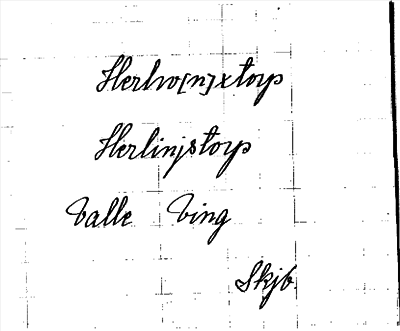 Herlvo[n]xtorp
Herlinjstorp
Valle Ving
Skjb.